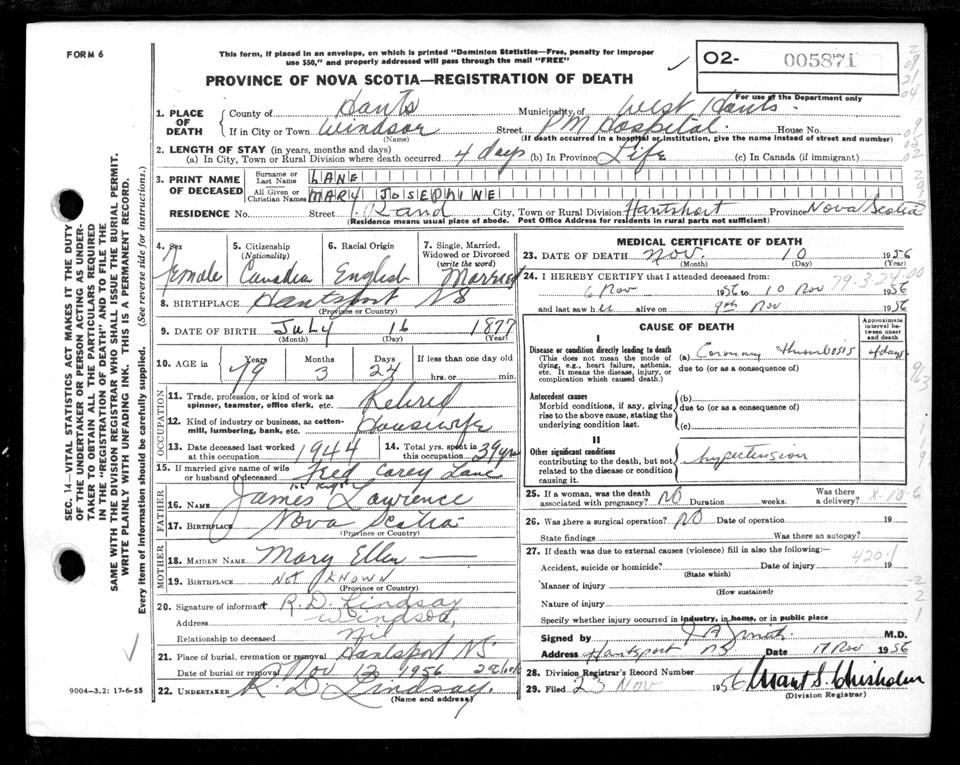 FORM 6
This form, if placed in an envelope, on which is printed "Dominion Statistics—Free, penalty for improper
use $50," and properly addressed will pass through the mail "FREE"
02- 005871
For use of the Department only
PROVINCE OF NOVA SCOTIA—REGISTRATION OF DEATH
1. PLACE OF DEATH
County of Hants Municipality of West Hants
If in City or Town Windsor Street P M Hospital House No.
(Name) (If death occurred in a hospital or institution, give the name instead of street and number)
2. LENGTH OF STAY (in years, months and days)
(a) In City, Town or Rural Division where death occurred 4 days (b) In Province Life (c) In Canada (if immigrant)
3. PRINT NAME OF DECEASED
Surname or Last Name LANE
All Given or Christian Names MARY JOSEPHINE
RESIDENCE No. Street City, Town or Rural Division Hantsport Province Nova Scotia
(Residence means usual place of abode. Post Office Address for residents in rural parts not sufficient)
4. Sex Female
5. Citizenship (Nationality) Canadian
6. Racial Origin English
7. Single, Married, Widowed or Divorced (write the word) Married
8. BIRTHPLACE Hantsport NS
(Province or Country)
9. DATE OF BIRTH July 16 1877
(Month) (Day) (Year)
10. AGE in Years 79 Months 3 Days 24 If less than one day old hrs. or min.
OCCUPATION
11. Trade, profession, or kind of work as spinner, teamster, office clerk, etc. Retired
12. Kind of industry or business, as cotton-mill, lumbering, bank, etc. Housewife
13. Date deceased last worked at this occupation 1944
14. Total yrs. spent in this occupation 39 yrs
15. If married give name of wife or husband of deceased Fred Carey Lane
FATHER
16. NAME James Lawrence
17. BIRTHPLACE Nova Scotia
(Province or Country)
MOTHER
18. MAIDEN NAME Mary Ellen —
19. BIRTHPLACE Not Known
(Province or Country)
20. Signature of informant R. D. Lindsay
Address Windsor,
Relationship to deceased Nil
21. Place of burial, cremation or removal Hantsport NS
Date of burial or removal Nov 13 1956
22. UNDERTAKER R. D. Lindsay.
(Name and address)
MEDICAL CERTIFICATE OF DEATH
23. DATE OF DEATH Nov. 10 1956
(Month) (Day) (Year)
24. I HEREBY CERTIFY that I attended deceased from:
6 Nov 1956 to 10 Nov 1956
79-3-24-00
and last saw h er alive on 9th Nov 1956
CAUSE OF DEATH
Approximate interval between onset and death
I
Disease or condition directly leading to death
(This does not mean the mode of dying, e.g., heart failure, asthenia, etc. It means the disease, injury, or complication which caused death.)
(a) Coronary Thrombosis 4 days
due to (or as a consequence of)
Antecedent causes
Morbid conditions, if any, giving rise to the above cause, stating the underlying condition last.
(b)
due to (or as a consequence of)
(c)
II
Other significant conditions
contributing to the death, but not related to the disease or condition causing it.
hypertension
25. If a woman, was the death associated with pregnancy? NO Duration weeks. Was there a delivery?
X-10-6
26. Was there a surgical operation? NO Date of operation 19
State findings Was there an autopsy?
27. If death was due to external causes (violence) fill in also the following:—
420.1
Accident, suicide or homicide? Date of injury 19
(State which)
Manner of injury
(How sustained)
Nature of injury
Specify whether injury occurred in industry, in home, or in public place
Signed by M.D.
Address Hantsport NS Date 17 Nov 1956
28. Division Registrar's Record Number
29. Filed 23 Nov 1956 Grant S. Chisholm
(Division Registrar)
SEC. 14—VITAL STATISTICS ACT MAKES IT THE DUTY
OF THE UNDERTAKER OR PERSON ACTING AS UNDER-
TAKER TO OBTAIN ALL THE PARTICULARS REQUIRED
IN THE "REGISTRATION OF DEATH" AND TO FILE THE
SAME WITH THE DIVISION REGISTRAR WHO SHALL ISSUE THE BURIAL PERMIT.
WRITE PLAINLY WITH UNFADING INK. THIS IS A PERMANENT RECORD.
Every item of information should be carefully supplied. (See reverse side for instructions.)
9004-3.2: 17-6-55